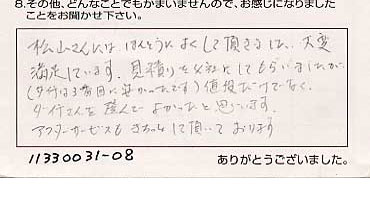 8.その他、どんなことでもかまいませんので、お感じになりました
ことをお聞かせ下さい。
松山さんには ほんとうに よくして頂き 大変
満足しています。見積りを 父社にしてもらいましたが
(ダイ行は3番目に安かったです)値段だけでなく、
ダイ行さんを選んで よかったと思います。
アフターサービスも きちっと して頂いて おります
11330031-08
ありがとうございました。